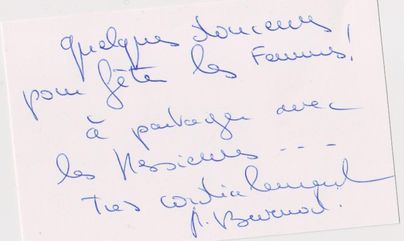 quelques douceurs
pour fêter les Femmes!
à partager avec
les Messieurs - - -
Très cordialement